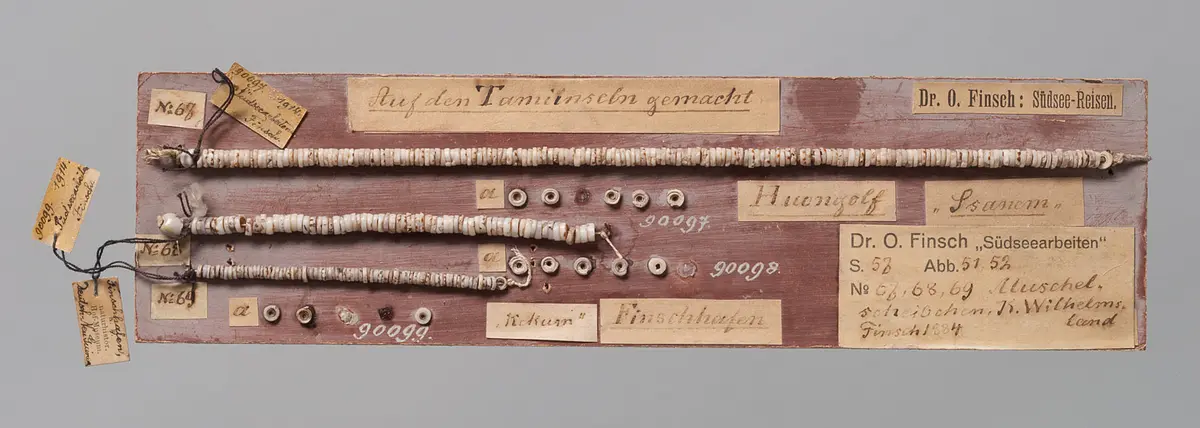 No 67
90097. 1914.
Südseearbeiten
Finsch.
Auf den Tamiinseln gemacht
Dr. O. Finsch: Südsee-Reisen.
a
90097.
Huongolf
„Ssanem"
No 68
a
90098.
No 69
a
90099.
„Kekum"
Finschhafen
Dr. O. Finsch „Südseearbeiten"
S. 57 Abb. 51. 52
No 67, 68, 69 Muschel-
scheibchen. K. Wilhelms-
land
Finsch 1884
1914
Finsch
Finschhafen,